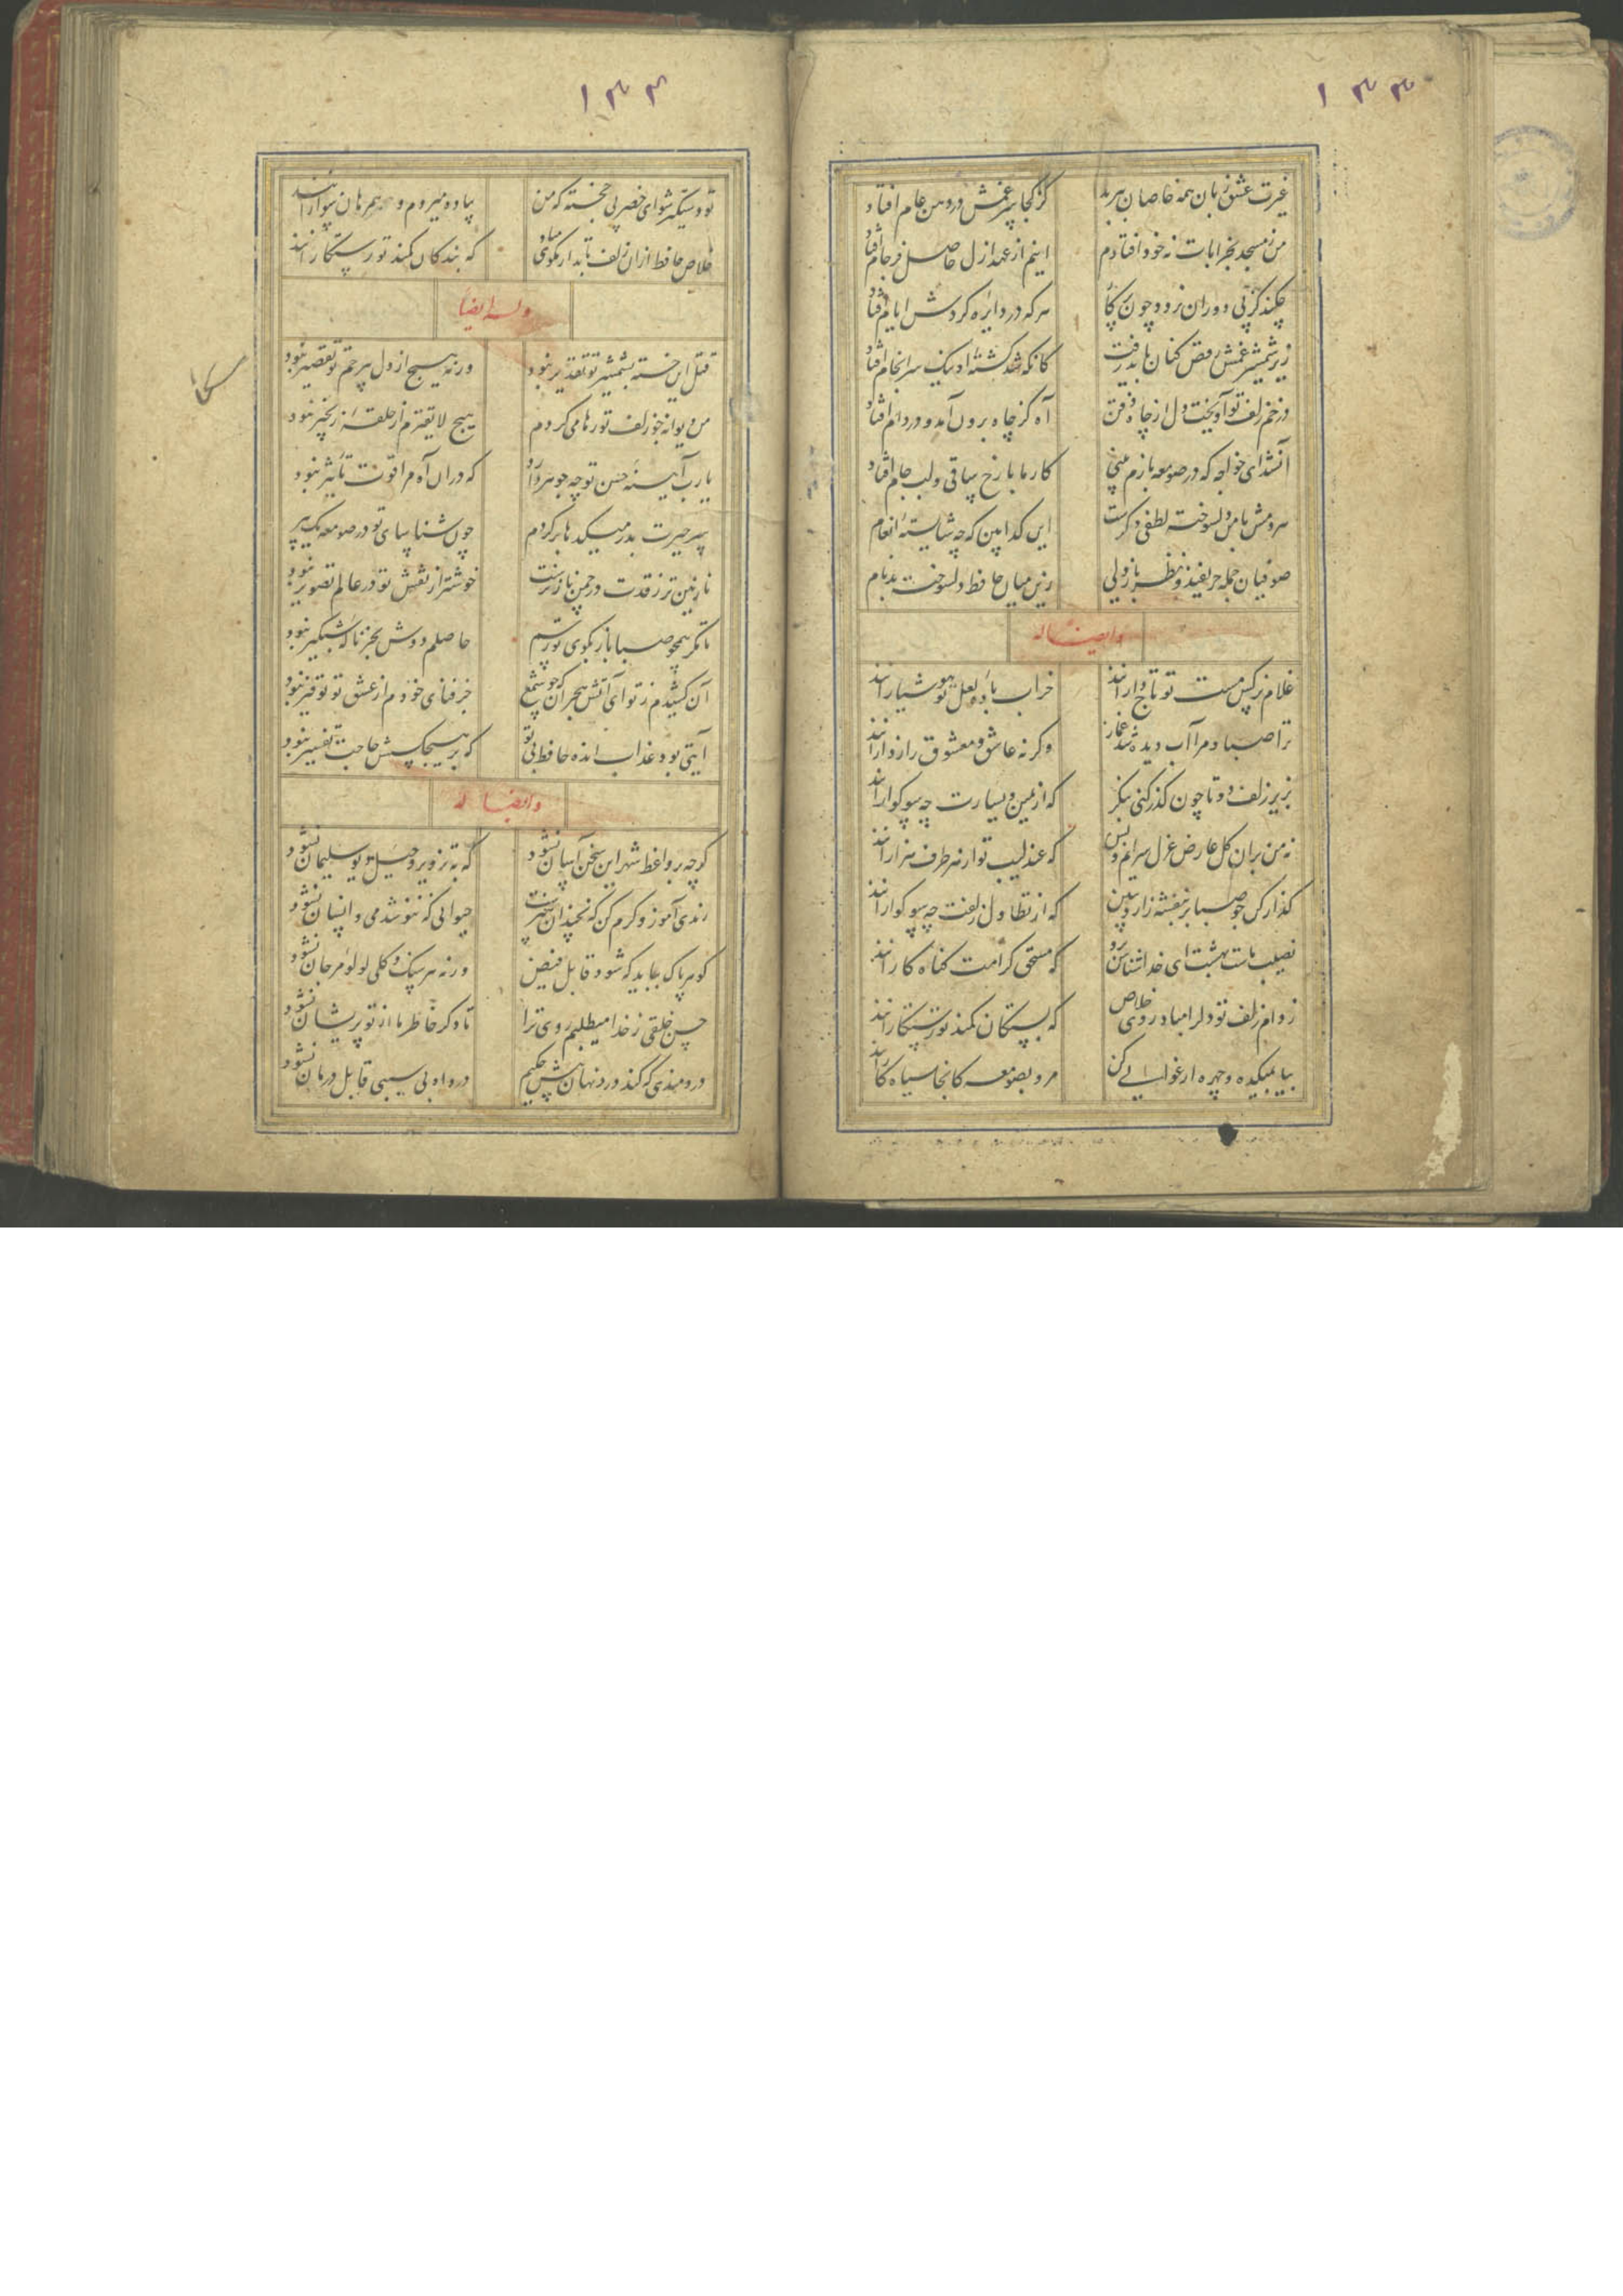 ۱۳۳
غیرت عشق زبان همه خاصان ببرید
کز کجا سر غمش در دهن عام افتاد
من ز مسجد بخرابات نه خود افتادم
اینم از عهد ازل حاصل فرجام افتاد
چکند کز پی دوران نرود چون پرکار
هر که در دایره گردش ایام افتاد
زیر شمشیر غمش رقص کنان باید رفت
کانکه شد کشته او نیک سرانجام افتاد
در خم زلف تو آویخت دل از چاه ذقن
آه کز چاه برون آمد و در دام افتاد
آنشد ای خواجه که در صومعه بازم بینی
کار ما با رخ ساقی و لب جام افتاد
هردمش با من دلسوخته لطفی دگرست
این گدا بین که چه شایسته انعام
صوفیان جمله حریفند و نظرباز ولی
زین میان حافظ دلسوخته بدنام
وایضا له
غلام نرکس مست تو تاج دارانند
خراب باده لعل تو هوشیارانند
ترا صبا و مرا آب دیده شد غماز
وگرنه عاشق و معشوق رازدارانند
بزیر زلف دوتا چون گذر کنی بنگر
که از یمین و یسارت چه سوکوارانند
نه من بران گل عارض غزل سرایم و بس
که عندلیب تو از هر طرف هزارانند
گذار کن چو صبا بر بنفشه زار و ببین
که از تطاول زلفت چه سوکوارانند
نصیب ماست بهشت ای خداشناس برو
که مستحق کرامت گناه کارانند
ز دام زلف تو دلرا مباد روی خلاص
که بستگان کمند تو رستگارانند
بیا بمیکده و چهره ارغوانی کن
مرو بصومعه کانجا سیاه کارانند
۱۳۴
تو دستگیر شو ای خضر پی خجسته که من
پیاده میروم و همرهان سوارانند
خلاص حافظ ازان زلف تابدار مباد
که بندگان کمند تو رستگارانند
وله ایضا
قتل این خسته بشمشیر تو تقدیر نبود
ورنه هیچ از دل بیرحم تو تقصیر نبود
من دیوانه چو زلف تو رها می کردم
هیچ لایقترم از حلقه زنجیر نبود
یارب آیینه حسن تو چه جوهر دارد
که دران آه مرا قوت تاثیر نبود
سر حیرت بدر میکدها برکردم
چون شناسای تو در صومعه یک پیر
نازنین تر ز قدت در چمن ناز نرست
خوشتر از نقش تو در عالم تصویر نبود
تا مگر همچو صبا باز بکوی تو رسم
حاصلم دوش بجز ناله شبگیر نبود
آن کشیدم ز تو ای آتش هجران که چو شمع
جز فنای خودم از عشق تو توقیر نبود
آیتی بود عذاب انده حافظ بی تو
که بر هیچکسش حاجت تفسیر نبود
وایضا له
گرچه بر واعظ شهر این سخن آسان نشود
که به تزویر و حیل دیو سلیمان نشود
رندی آموز و کرم کن که نچندان هنرست
حیوانی که ننوشد می و انسان نشود
گوهر پاک بباید که شود قابل فیض
ورنه هر سنگ و گلی لولو مرجان نشود
حسن خلقی ز خدا میطلبم روی ترا
تا دگر خاطر ما از تو پریشان نشود
دردمندی که کند درد نهان پیش حکیم
درد او بی سببی قابل درمان نشود